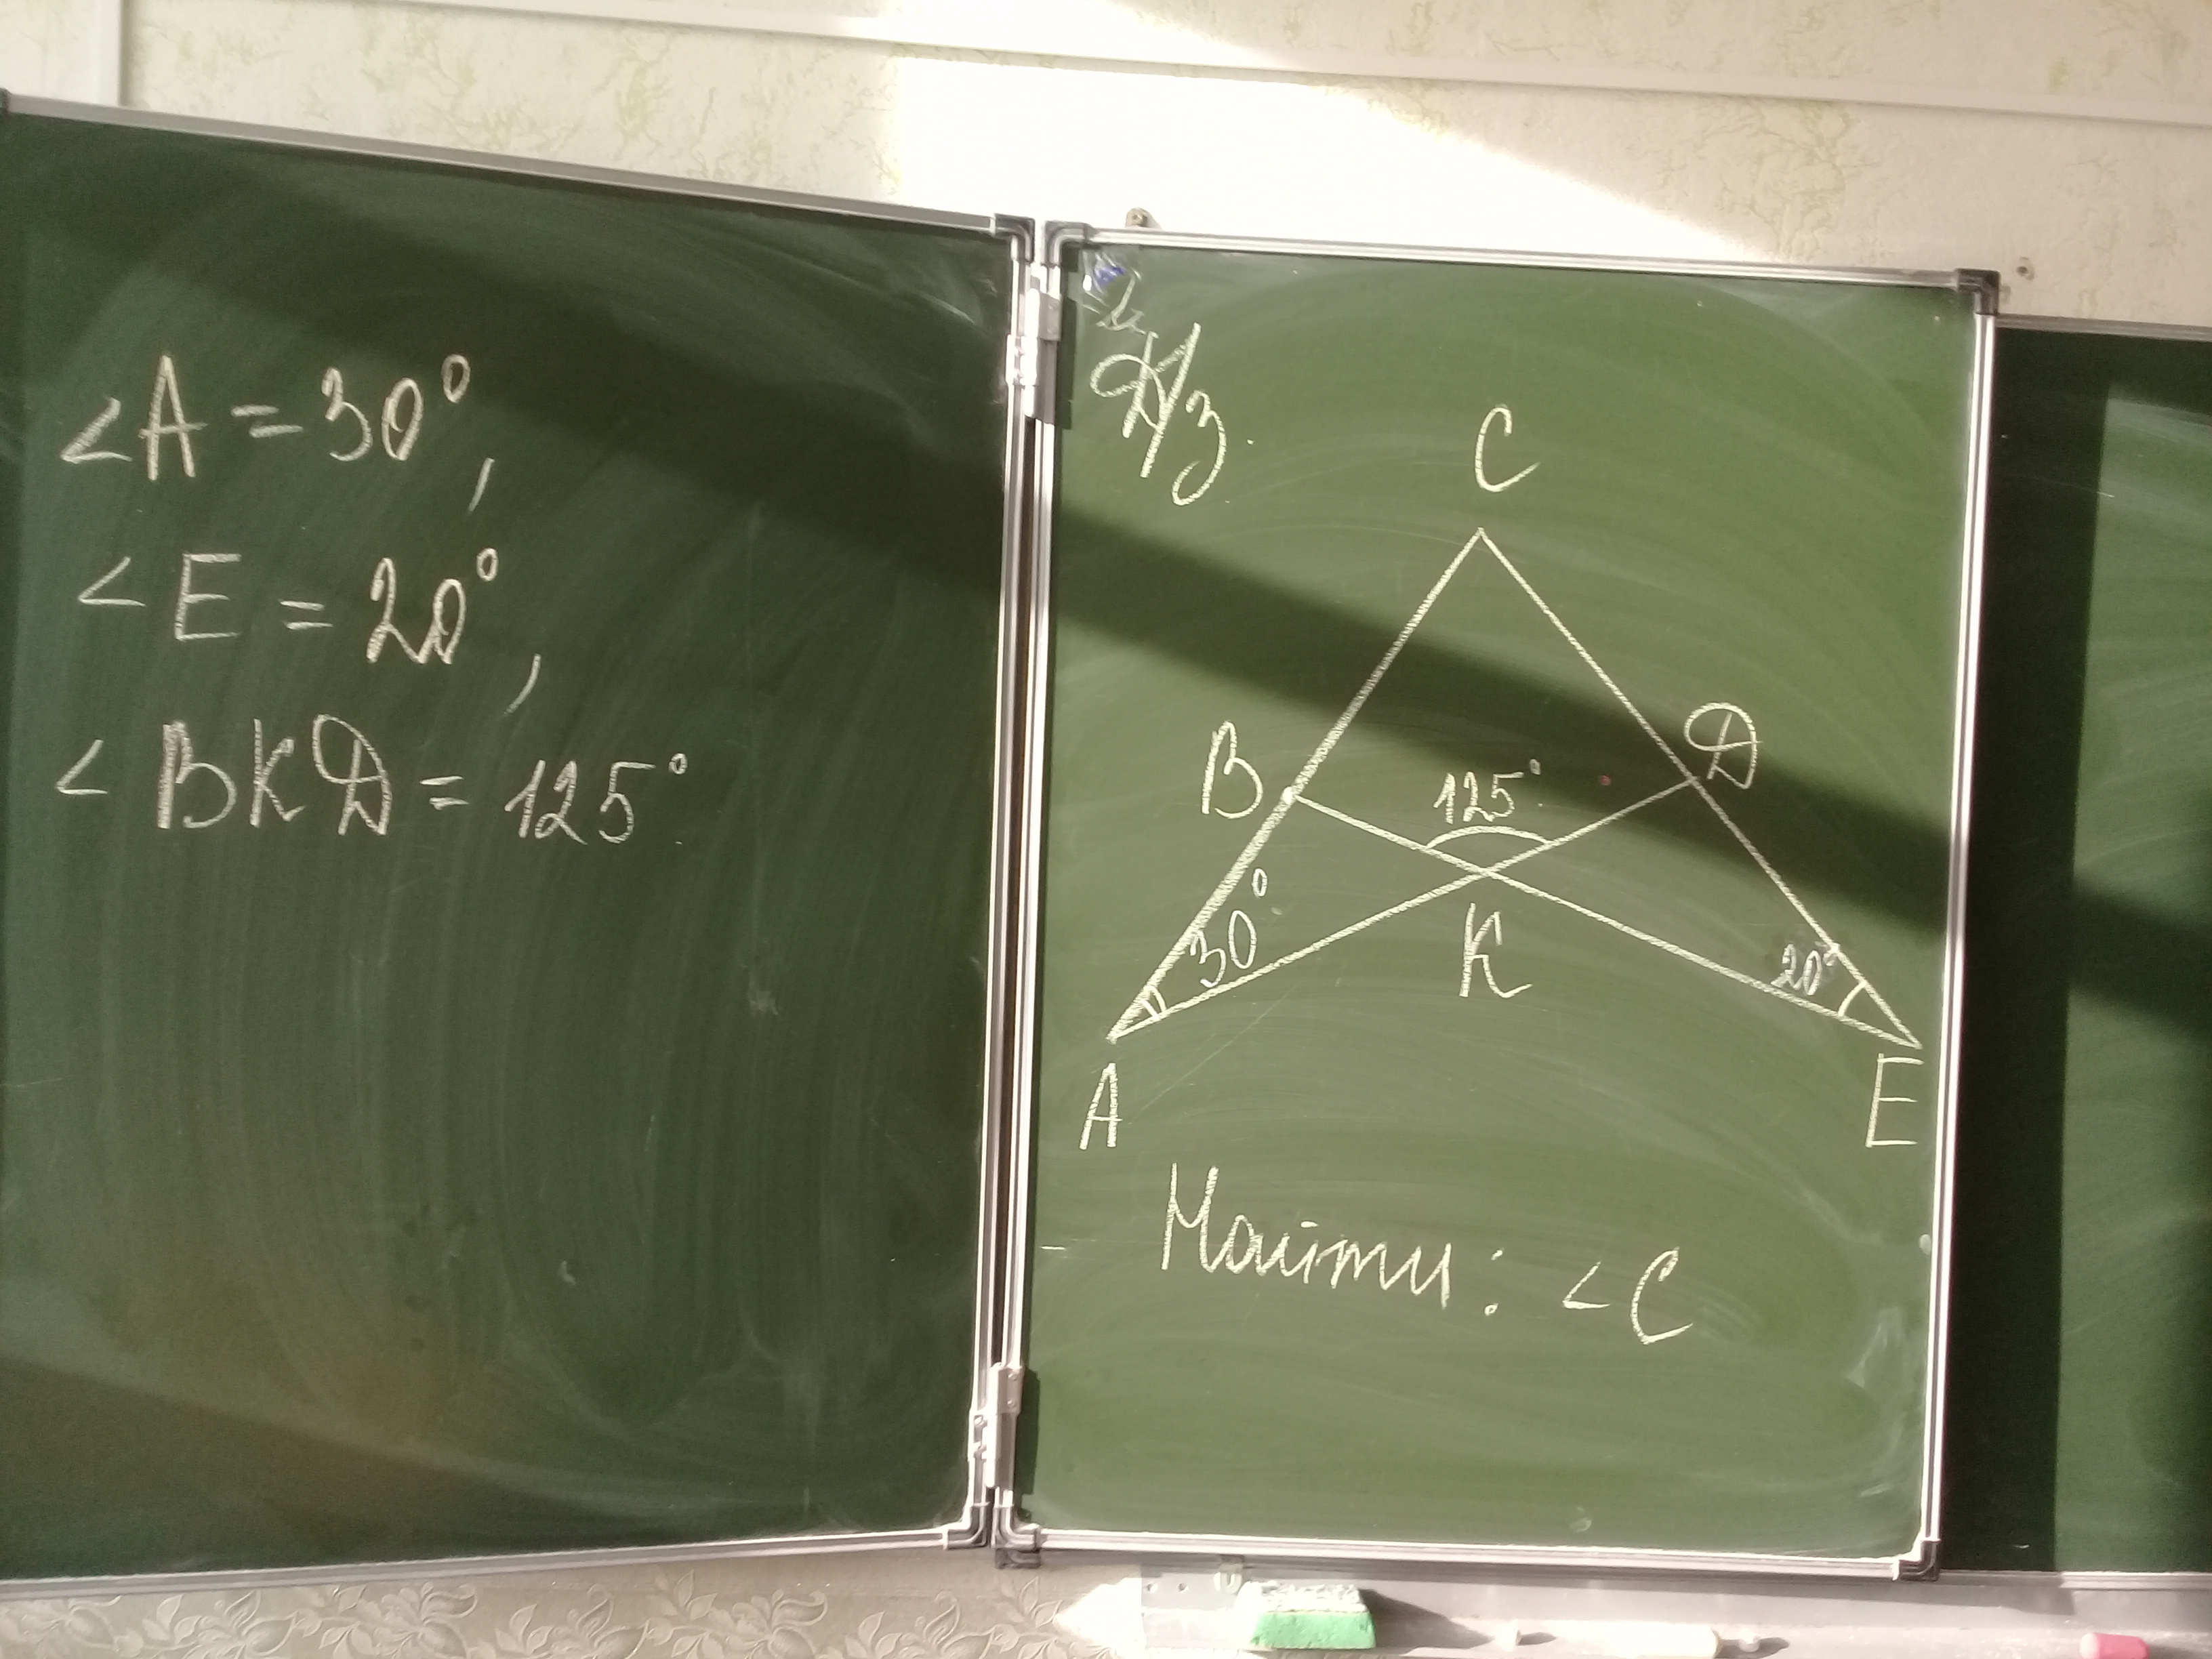 <A = 30°,
<E = 20°,
<BKD = 125°
Д/з.
C
B
D
125°
30°
K
20°
A
E
Найти: <C